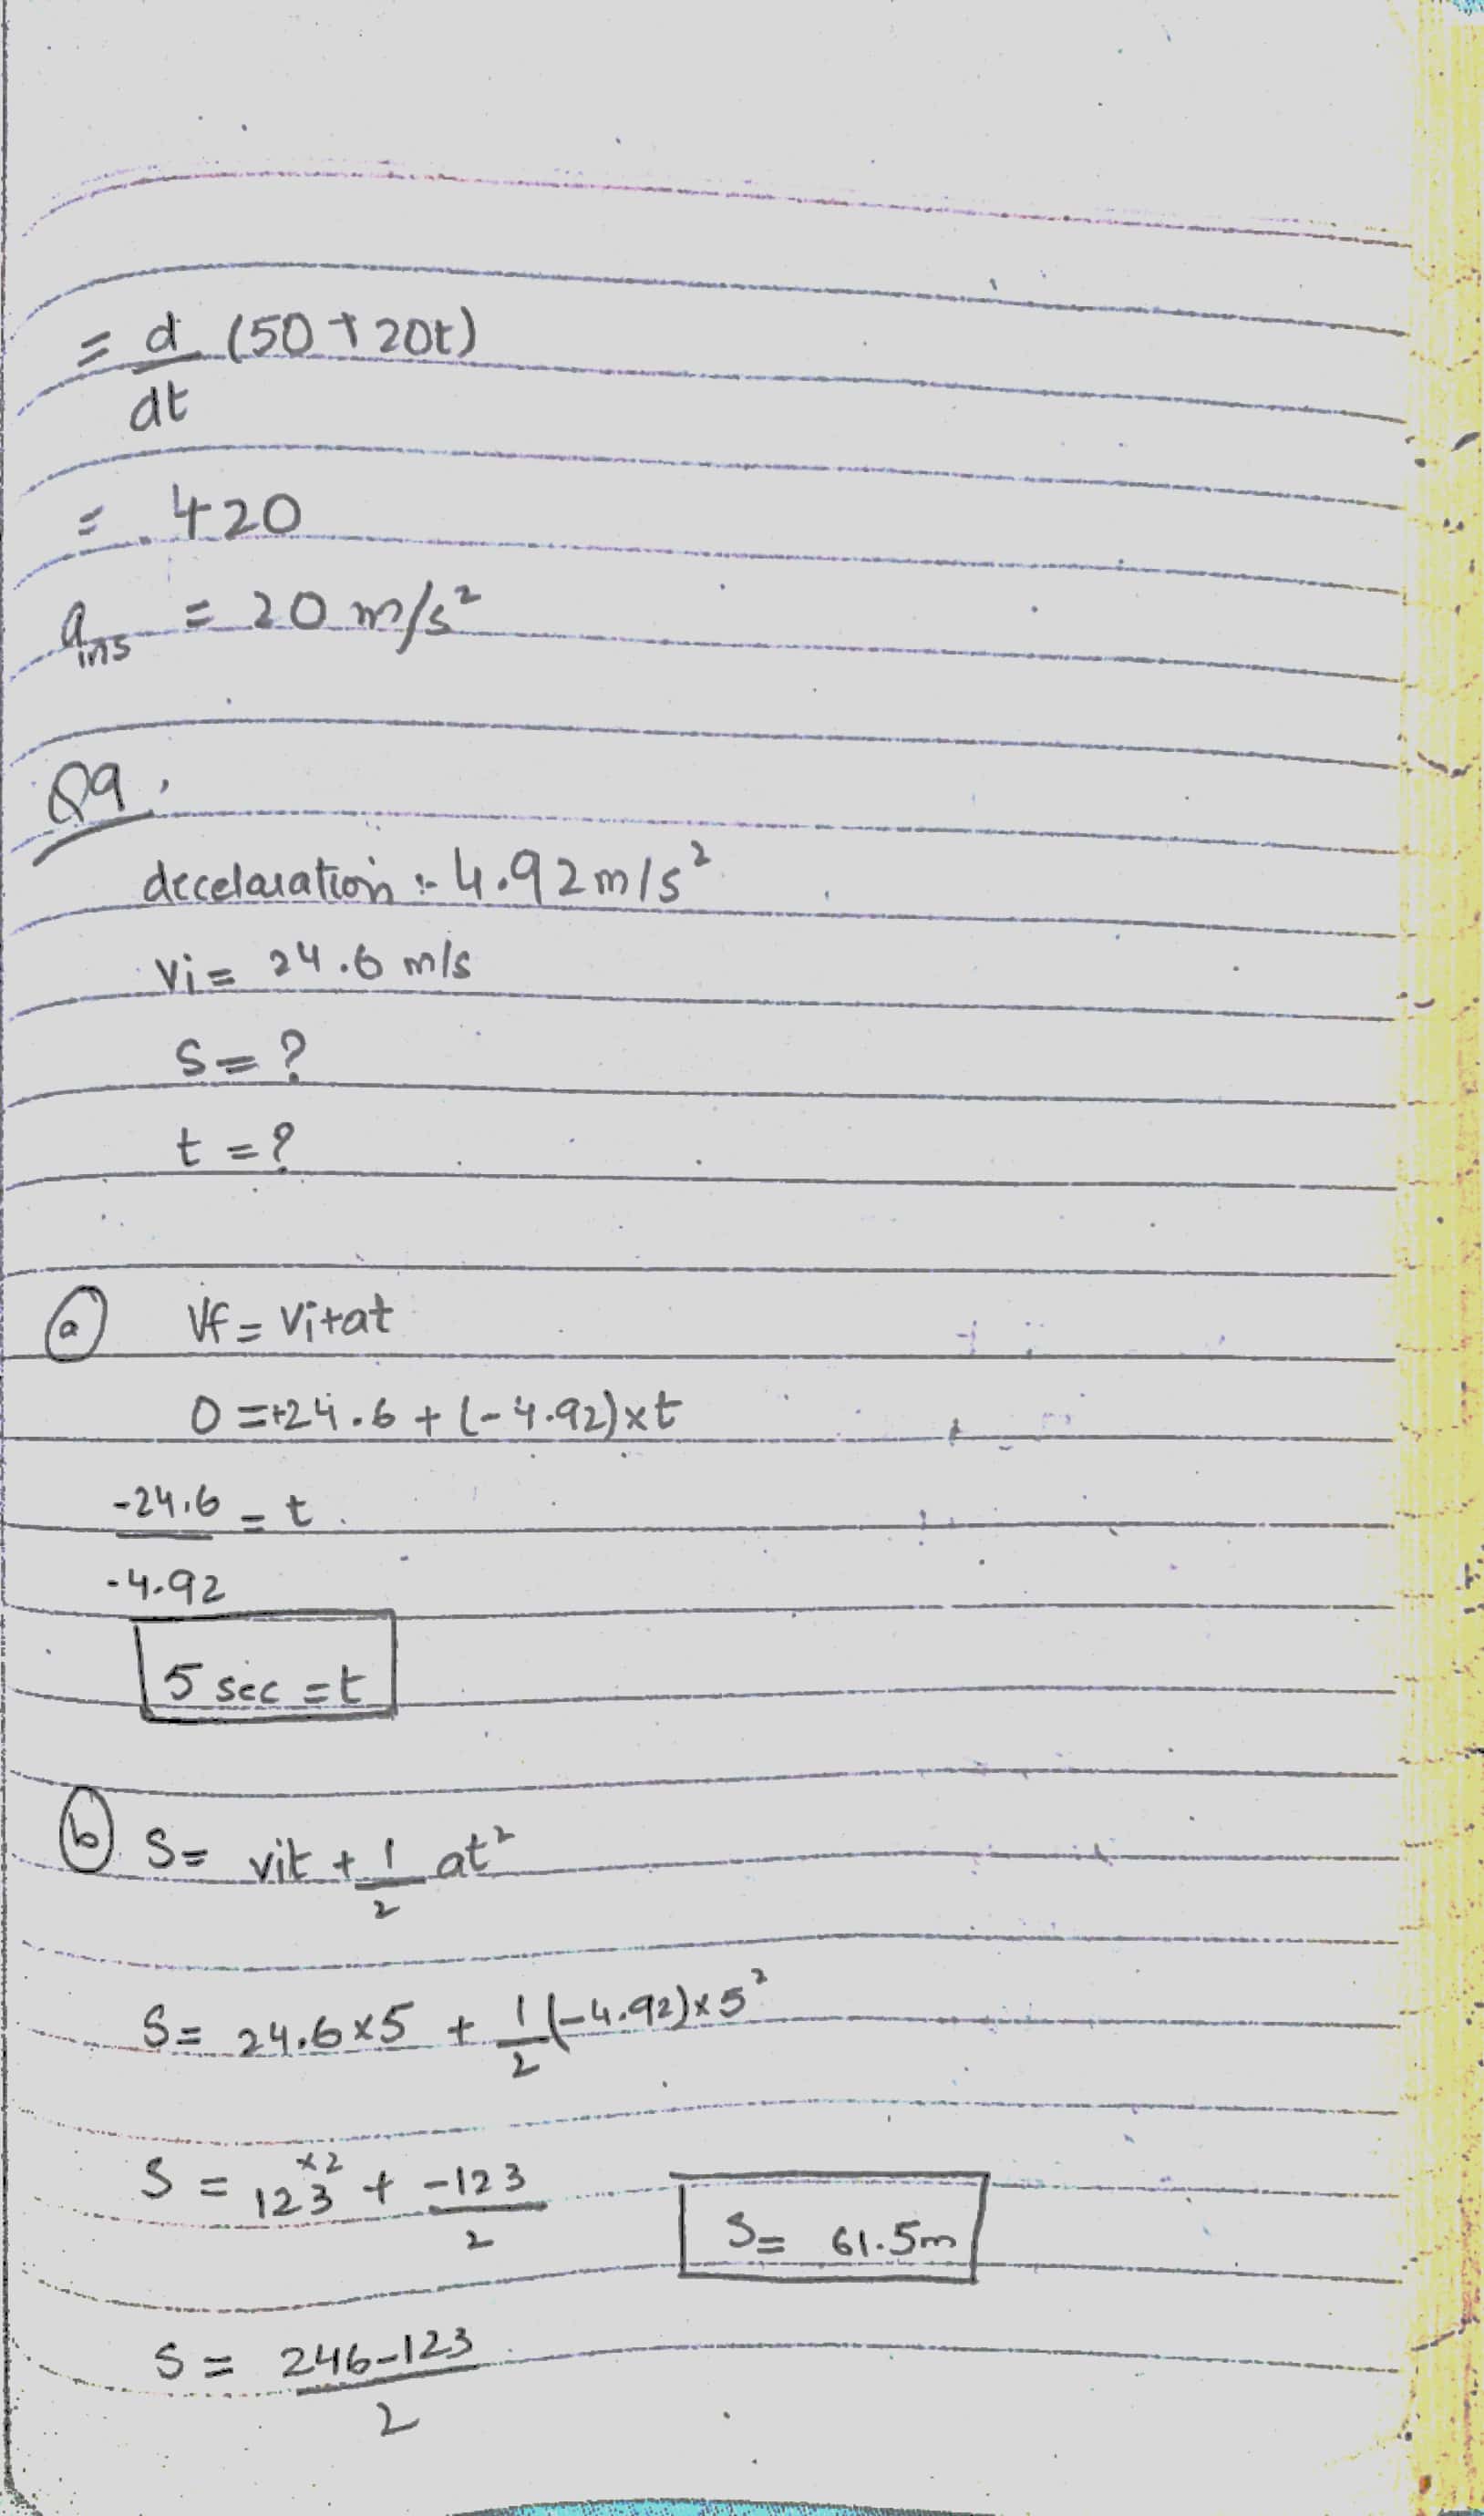 = d/dt (50 + 20t)
= +20
a ins = 20 m/s²
Q9.
decelaration :- 4.92 m/s²
Vi = 24.6 m/s
S = ?
t = ?
(a) Vf = Vi + at
0 = +24.6 + (-4.92) × t
-24.6/-4.92 = t
5 sec = t
(b) S = vit + 1/2 at²
S = 24.6 × 5 + 1/2 (-4.92) × 5²
S = 123 ×2 + -123/2
S = 61.5m
S = 246-123/2